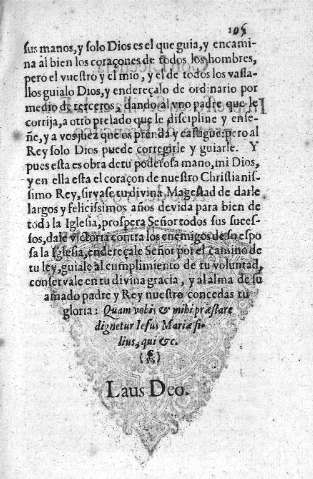 105
sus manos, y solo Dios es el que guia, y encami-
na al bien los coraçones de todos los hombres,
pero el vuestro y el mio, y el de todos los vassa-
llos guialo Dios, y endereçalo de ordinario por
medio de terceros, dando al vno padre que le
corrija, a otro prelado que le discipline y ense-
ñe, y a vos juez que os prenda y castigue: pero al
Rey solo Dios puede corregirle y guiarle. Y
pues esta es obra de tu poderosa mano, mi Dios,
y en ella esta el coraçon de nuestro Christianis-
simo Rey, sirvase tu divina Magestad de darle
largos y felicissimos años de vida para bien de
toda la Iglesia, prospera Señor todos sus suces-
sos, dale victoria contra los enemigos de su espo
sa la Iglesia, endereçale Señor por el camino de
tu ley, guiale al cumplimiento de tu voluntad,
conservale en tu divina gracia, y al alma de su
amado padre y Rey nuestro concedas tu
gloria: Quam vobis & mihi præstare
dignetur Iesus Mariæ fi-
lius, qui &c.
Laus Deo.